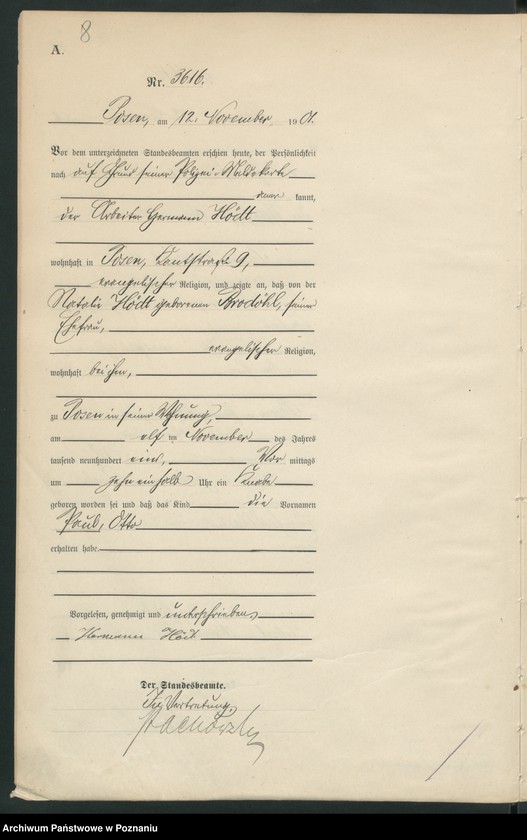 8
A.
Nr. 3616.
Posen, am 12. November 1901.
Vor dem unterzeichneten Standesbeamten erschien heute, der Persönlichkeit
nach auf Grund seiner Polizei-Meldekarte
kannt,
der Arbeiter Hermann Hödt
wohnhaft in Posen, Kantstraße 9,
evangelischer Religion, und zeigte an, daß von der
Natalie Hödt geborenen Brodöhl, seiner
Ehefrau,
evangelischer Religion,
wohnhaft bei ihm,
zu Posen in seiner Wohnung,
am elf ten November des Jahres
tausend neunhundert eins, Vor mittags
um zehn ein halb Uhr ein Knabe
geboren worden sei und daß das Kind die Vornamen
Paul, Otto
erhalten habe.
Vorgelesen, genehmigt und unterschrieben
Hermann Hödt
Der Standesbeamte.
In Vertretung.
Archiwum Państwowe w Poznaniu